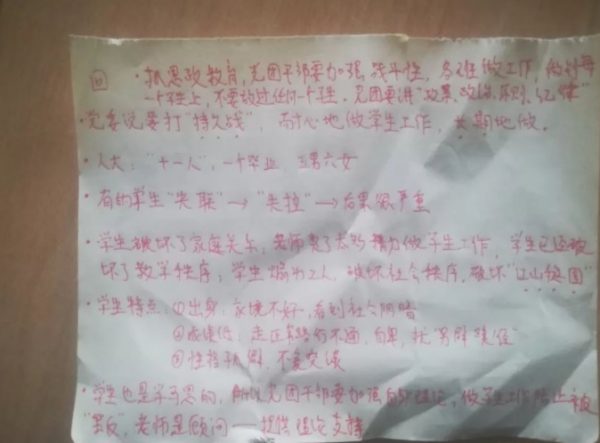 回 · 抓思政教育，党团干部要加强战斗性，多在做工作，做到每
一个学生上，不要放过任何一个学生。党团要讲"效果、政治、原则、纪律"
· 党委说要打"持久战"，耐心地做学生工作，长期地做。
· 人大："十一人"，一个毕业，五男六女
· 有的学生"失联"→"失控"→后果很严重
· 学生破坏了家庭关系，老师费了太多精力做学生工作，学生已经破
坏了教学秩序，学生煽动工人，破坏社会秩序，破坏"江山稳固"
· 学生特点：①出身：家境不好，看到社会阴暗
②成绩低：走正常路行不通，自卑，找另辟蹊径"
③性格孤僻，不爱交谈
· 学生也是学马恩的，所以党团干部要加强自己理论，做学生工作防止被
"策反"，老师是顾问——提供理论支撑